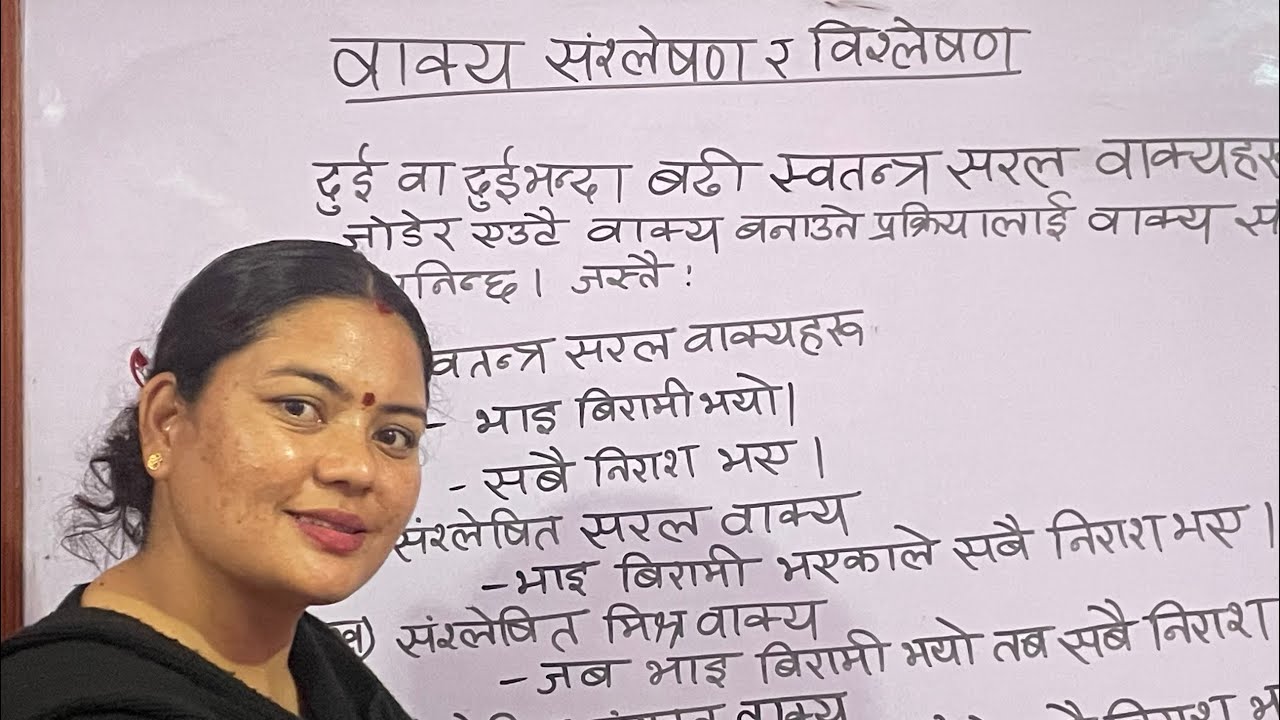 वाक्य संश्लेषण र विश्लेषण
दुई वा दुईभन्दा बढी स्वतन्त्र सरल वाक्यहरू
जोडेर एउटै वाक्य बनाउने प्रक्रियालाई वाक्य
जस्तै :
सरल वाक्यहरू
- भाइ बिरामी भयो।
- सबै निराश भए ।
संश्लेषित सरल वाक्य
- भाइ बिरामी भएकाले सबै निराश भए ।
ख) संश्लेषित मिश्र वाक्य
- जब भाइ बिरामी भयो तब सबै निराश
वाक्य